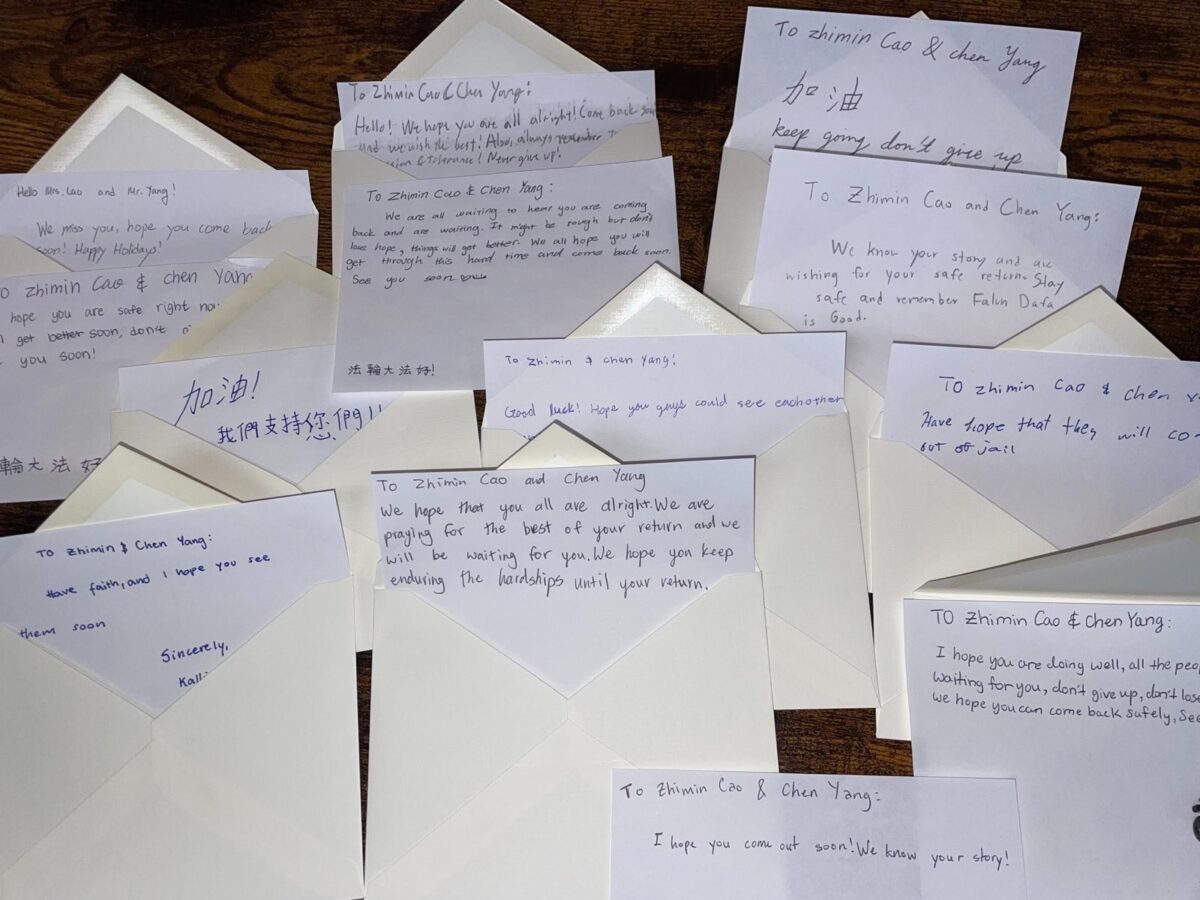 To Zhimin Cao & Chen Yang:
Hello! We hope you are all alright! Come back soon
and we wish the best! Also, always remember
& tolerance! Never give up!
To zhimin Cao & chen Yang
加油
keep going don't give up
Hello Mrs. Cao and Mr. Yang!
We miss you, hope you come back
soon! Happy Holidays!
To Zhimin Cao & Chen Yang:
We are all waiting to hear you are coming
back and are waiting. It might be rough but don't
lose hope, things will get better. We all hope you will
get through this hard time and come back soon.
See you soon
法輪大法好!
To Zhimin Cao and Chen Yang:
We know your story and are
wishing for your safe return. Stay
safe and remember Falun Dafa
is Good.
To zhimin Cao & chen Yang
hope you are safe right now
get better soon, don't
you soon!
輪大法好
加油!
我們支持您們!!
To Zhimin & chen Yang:
Good luck! Hope you guys could see eachother
To zhimin Cao & chen
Have hope that they will co
out of jail
To zhimin & Chen Yang:
Have faith, and I hope you see
them soon
Sincerely,
Kalli
To Zhimin Cao and Chen Yang
We hope that you all are alright. We are
praying for the best of your return and we
will be waiting for you. We hope you keep
enduring the hardships until your return.
To Zhimin Cao & Chen Yang:
I hope you are doing well, all the peo
waiting for you, don't give up, don't lose
we hope you can come back safely, See
To Zhimin Cao & Chen Yang:
I hope you come out soon! We know your story!